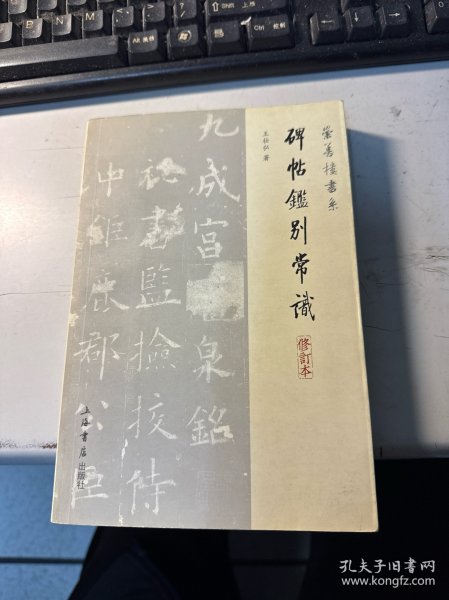 崇善樓書系
碑帖鑑别常識
修訂本
王壮弘 著
九成宮
泉銘
祕書監撿挍侍
中鉅鹿郡公臣
上海書店出版社
Shift 上档
Alt 换档
Ctrl 控制
孔夫子旧书网
www.kongfz.com